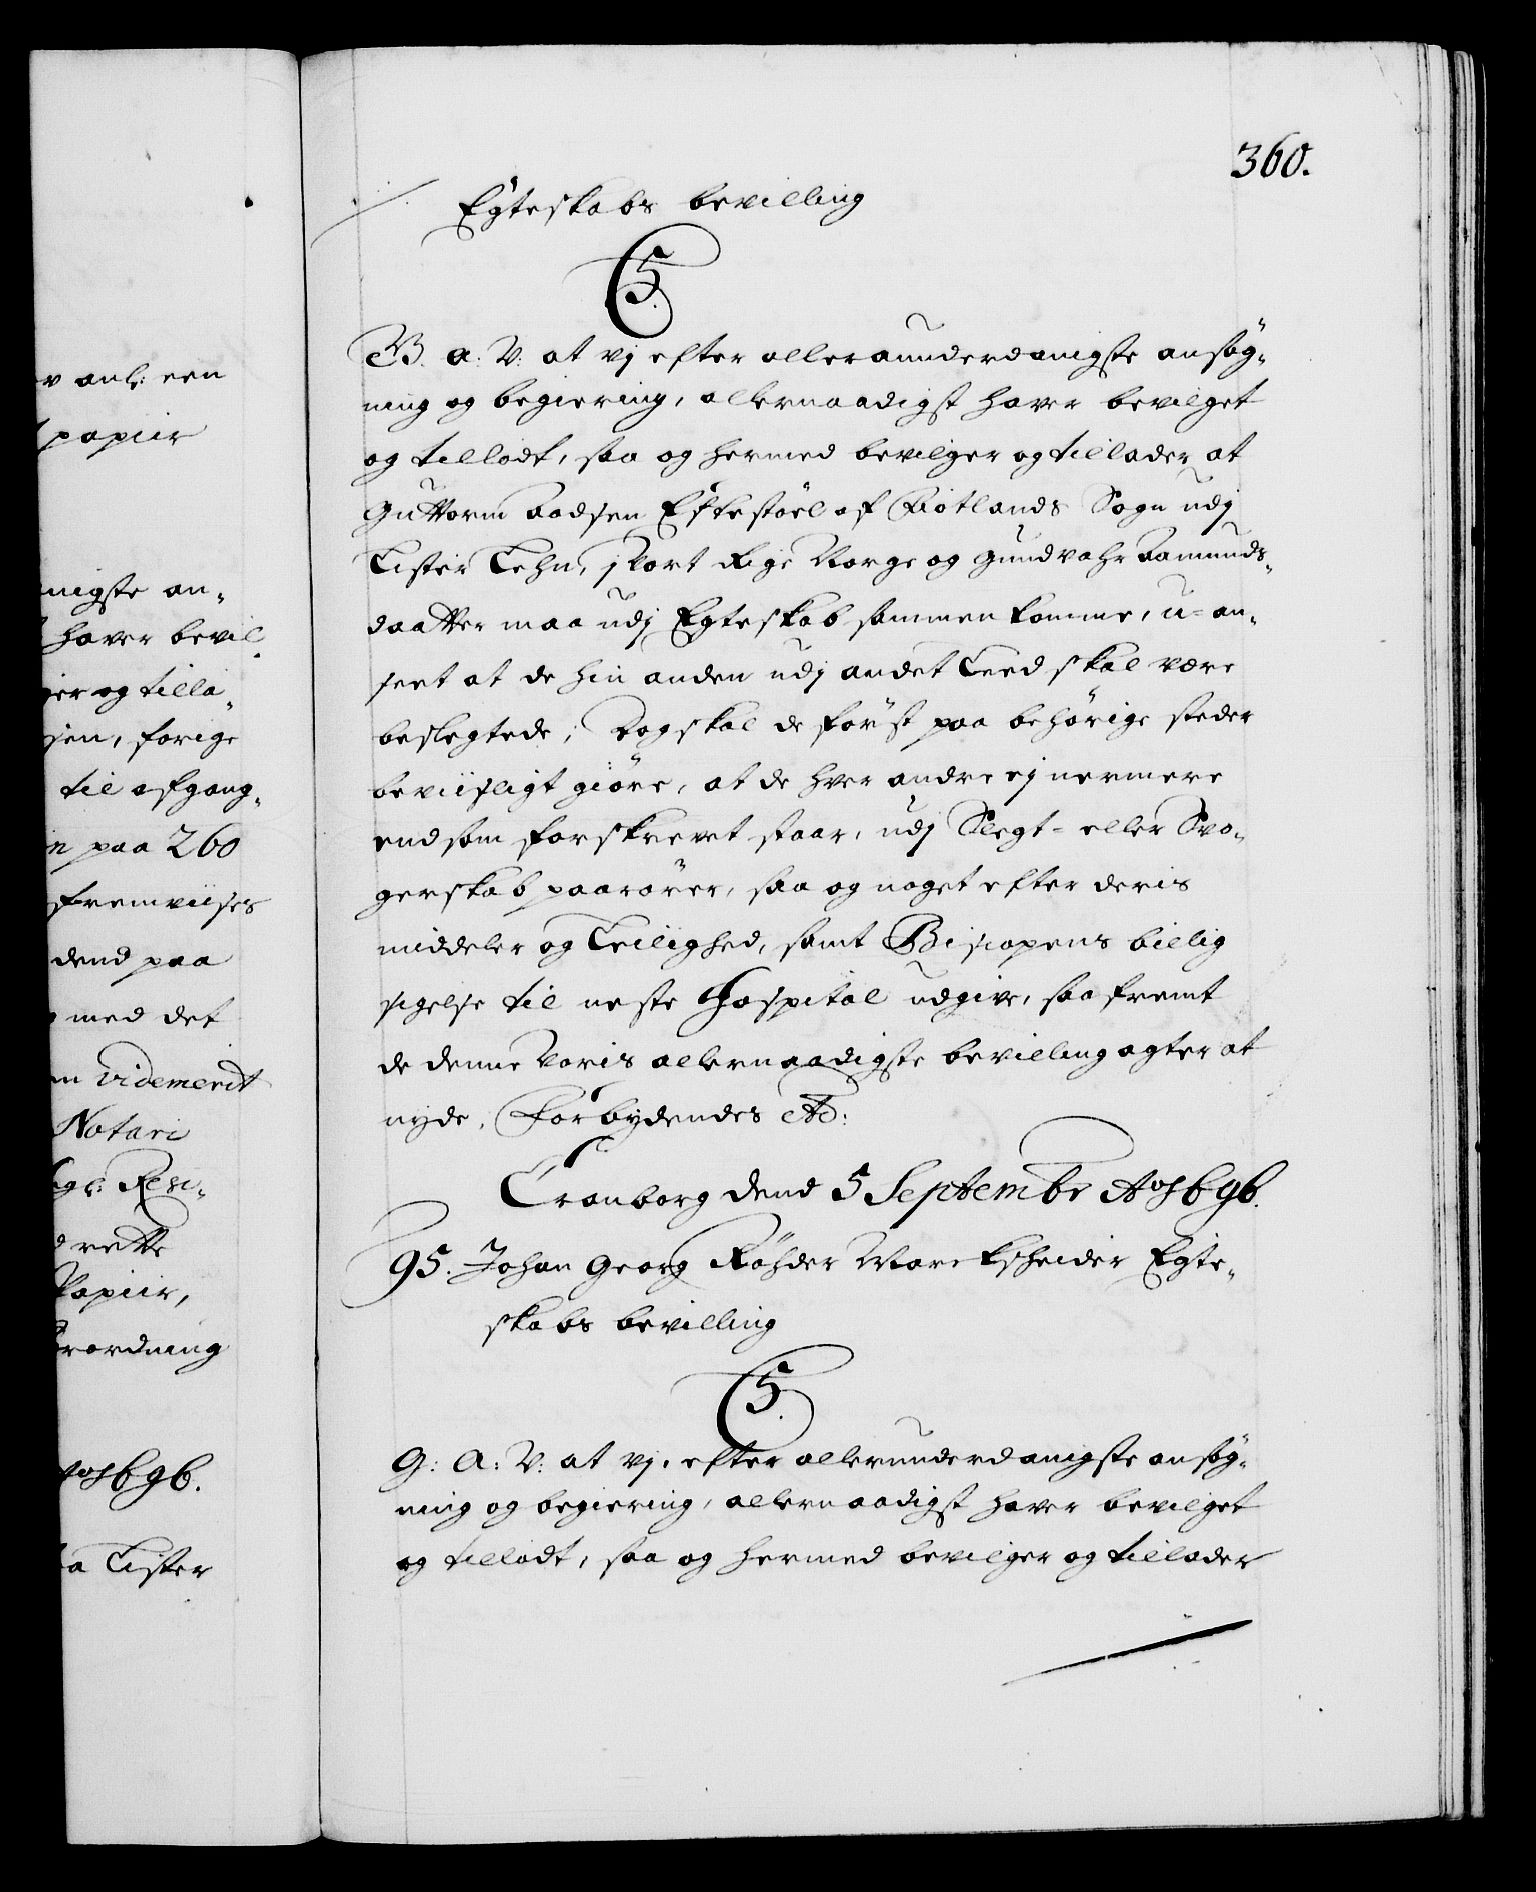 360.
Egteskabs bevilling
C5.
G. A: V: at vj efter allerunderdanigste ansøg-
ning og begiering, allernaadigst haver bevilget
og tilladt, saa og hermed bevilger og tillader at
Guttorm Aadsen Eskestöel af Fiotlands Sogn udj
Lister Lehn, j Vort Rige Norge og Gundvahr Aamunds-
daatter maa udj Egteskab sammen komme, u-an-
seet at de hin anden udj andet Leed skal være
beslegtede; Dog skal de først paa behörige steder
beviisligt giöre, at de hver andre ej nermere
end som forskrevet staar, udj Slegt- eller Svo-
gerskab paarörer, saa og noget efter deris
middeler og Leilighed, samt Biscopens billig
sigelse til neste Hospital udgive, saa fremt
de denne Voris allernaadigste bevilling agter at
nyde, Forbydendes etc:
Cronborg dend 5 Septembr Ao 1696.
95. Johan Georg Röhder Markscheider Egte-
skabs bevilling
C5.
G: A: V: at vj, efter allerunderdanigste ansøg-
ning og begiering, allernaadigst haver bevilget
og tilladt, saa og hermed bevilger og tillader
v anl: een
papiir
nigste an-
haver bevil-
ger og tilla-
sen, forige
til afgang-
n paa 260
fremviises
dend paa
med det
m videmerit
Notari
Kgl: Resi-
d rette
Papiir,
rordning
Ao 1696.
a Lister